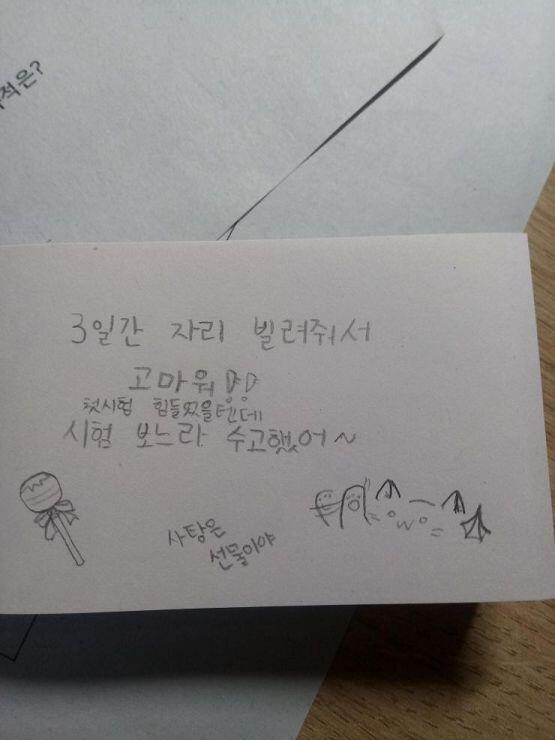 적은?
3일간 자리 빌려줘서
고마워!!
첫시험 힘들었을텐데
시험 보느라 수고했어~
사탕은
선물이야